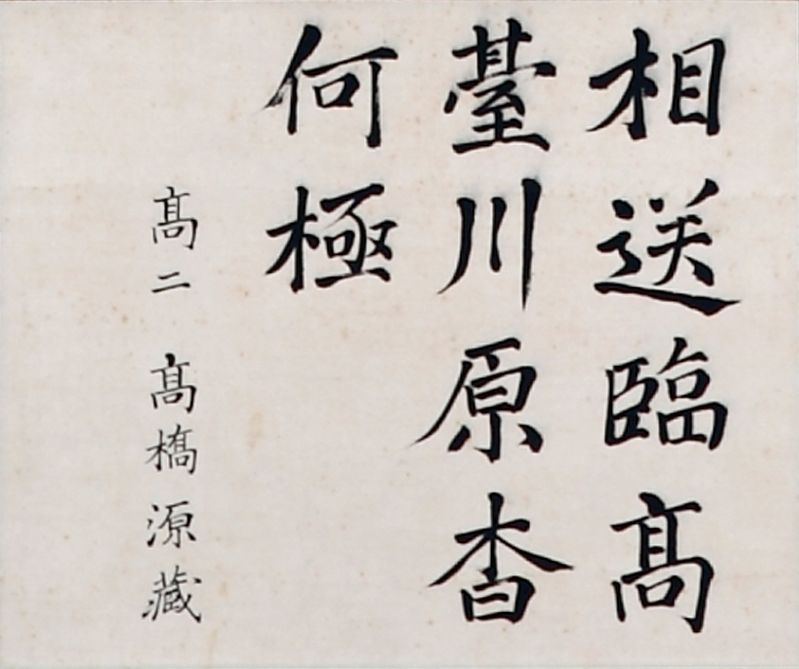 相送臨髙
臺川原杳
何極
髙二 髙橋源藏